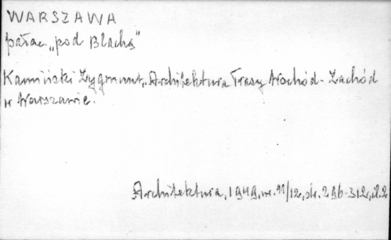 WARSZAWA
pałac „pod Blachą”
Kamiński Zygmunt, Architektura Trasy Wschód - Zachód
w Warszawie.
Architektura, 1949, nr. 11/12, str. 296-312, il. 2